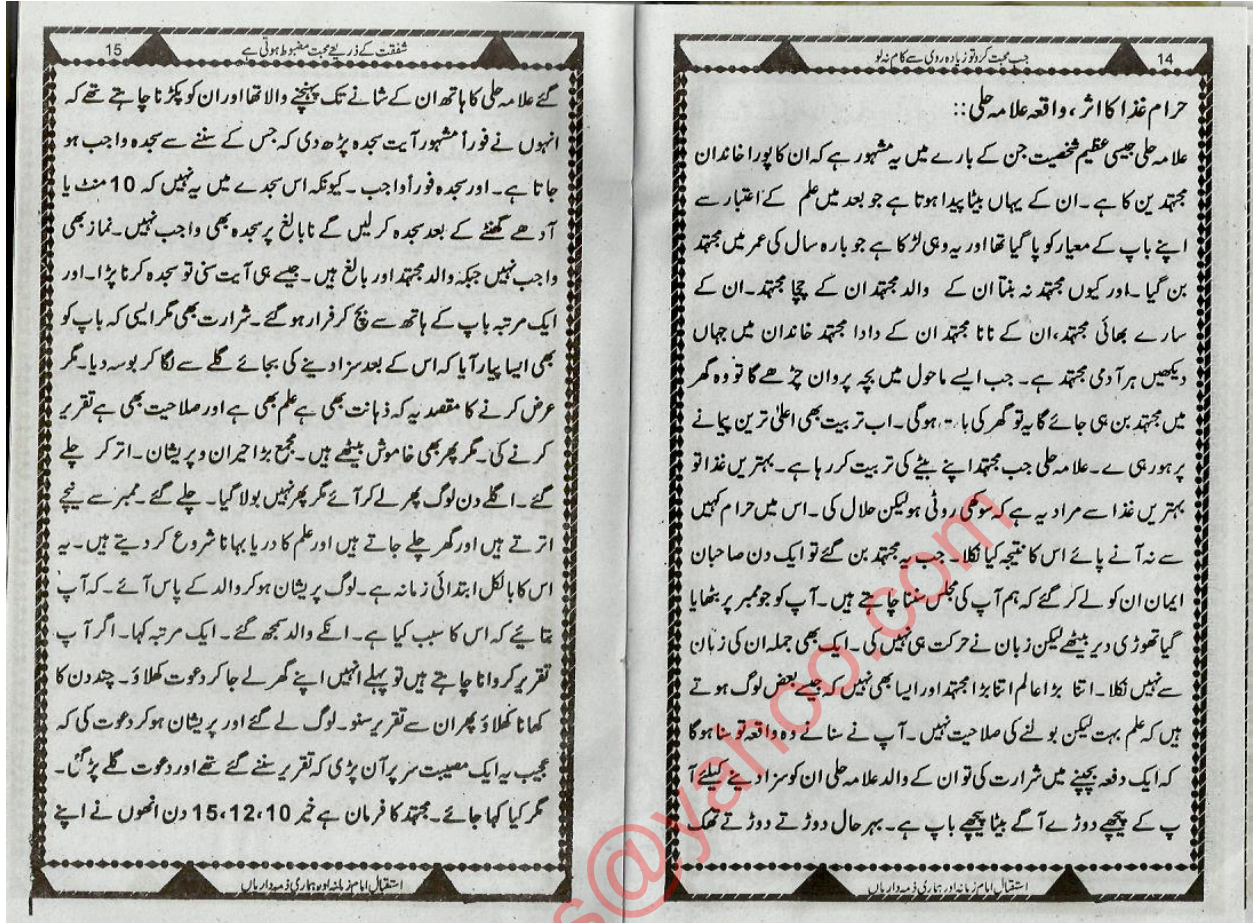 14
جب محبت کرو تو زیادہ روی سے کام نہ لو
حرام غذا کا اثر، واقعہ علامہ حلی::
علامہ حلی جیسی عظیم شخصیت جن کے بارے میں یہ مشہور ہے کہ ان کا پورا خاندان
مجتہدین کا ہے۔ ان کے یہاں بیٹا پیدا ہوتا ہے جو بعد میں علم کے اعتبار سے
اپنے باپ کے معیار کو پا گیا تھا اور یہ وہی لڑکا ہے جو بارہ سال کی عمر میں مجتہد
بن گیا۔ اور کیوں مجتہد نہ بنتا ان کے والد مجتہد ان کے چچا مجتہد۔ ان کے
سارے بھائی مجتہد، ان کے نانا مجتہد ان کے دادا مجتہد خاندان میں جہاں
دیکھیں ہر آدمی مجتہد ہے۔ جب ایسے ماحول میں بچہ پروان چڑھے گا تو وہ گھر
میں مجتہد بن ہی جائے گا یہ تو گھر کی بات ہوگی۔ اب تربیت بھی اعلیٰ ترین پیمانے
پر ہورہی ے۔ علامہ حلی جب مجتہد اپنے بیٹے کی تربیت کر رہا ہے۔ بہتریں غذا تو
بہتریں غذا سے مراد یہ ہے کہ سوکھی روٹی ہو لیکن حلال کی۔ اس میں حرام کہیں
سے نہ آنے پائے اس کا نتیجہ کیا نکلا۔ جب یہ مجتہد بن گئے تو ایک دن صاحبان
ایمان ان کو لے کر گئے کہ ہم آپ کی مجلس سننا چاہتے ہیں۔ آپ کو جو ممبر پر بٹھایا
گیا تھوڑی دیر بیٹھے لیکن زبان نے حرکت ہی نہیں کی۔ ایک بھی جملہ ان کی زبان
سے نہیں نکلا۔ اتنا بڑا عالم اتنا بڑا مجتہد اور ایسا بھی نہیں کہ جیسے بعض لوگ ہوتے
ہیں کہ علم بہت لیکن بولنے کی صلاحیت نہیں۔ آپ نے سنا نے وہ واقعہ تو سنا ہوگا
کہ ایک دفعہ بچپنے میں شرارت کی تو ان کے والد علامہ حلی ان کو سزا دینے کیلئے آ
پ کے پیچھے دوڑے آگے بیٹا پیچھے باپ ہے۔ بہر حال دوڑتے دوڑتے تھک
استقبال امام زمانہ اور ہماری ذمہ داریاں
15
شفقت کے ذریعے محبت مضبوط ہوتی ہے
گئے علامہ حلی کا ہاتھ ان کے شانے تک پہنچنے والا تھا اور ان کو پکڑنا چاہتے تھے کہ
انہوں نے فوراً مشہور آیت سجدہ پڑھ دی کہ جس کے سننے سے سجدہ واجب ہو
جاتا ہے۔ اور سجدہ فوراً واجب۔ کیونکہ اس سجدے میں یہ نہیں کہ 10 منٹ یا
آدھے گھنٹے کے بعد سجدہ کرلیں گے نابالغ پر سجدہ بھی واجب نہیں۔ نماز بھی
واجب نہیں جبکہ والد مجتہد اور بالغ ہیں۔ جیسے ہی آیت سنی تو سجدہ کرنا پڑا۔ اور
ایک مرتبہ باپ کے ہاتھ سے بچ کر فرار ہوگئے۔ شرارت بھی مگر ایسی کہ باپ کو
بھی ایسا پیار آیا کہ اس کے بعد سزا دینے کی بجائے گلے سے لگا کر بوسہ دیا۔ مگر
عرض کرنے کا مقصد یہ کہ ذہانت بھی ہے علم بھی ہے اور صلاحیت بھی ہے تقریر
کرنے کی۔ مگر پھر بھی خاموش بیٹھے ہیں۔ مجمع بڑا حیران و پریشان۔ اتر کر چلے
گئے۔ اگلے دن لوگ پھر لے کر آئے مگر پھر نہیں بولا گیا۔ چلے گئے۔ ممبر سے نیچے
اترتے ہیں اور گھر چلے جاتے ہیں اور علم کا دریا بہانا شروع کردیتے ہیں۔ یہ
اس کا بالکل ابتدائی زمانہ ہے۔ لوگ پریشان ہوکر والد کے پاس آئے۔ کہ آپ
بتائیے کہ اس کا سبب کیا ہے۔ انکے والد سمجھ گئے۔ ایک مرتبہ کہا۔ اگر آپ
تقریر کروانا چاہتے ہیں تو پہلے انہیں اپنے گھر لے جا کر دعوت کھلاؤ۔ چند دن کا
کھانا کھلاؤ پھر ان سے تقریر سنو۔ لوگ لے گئے اور پریشان ہوکر دعوت کی کہ
عجیب یہ ایک مصیبت سر پر آن پڑی کہ تقریر سننے گئے تھے اور دعوت گلے پڑگئی۔
مگر کیا کہا جائے۔ مجتہد کا فرمان ہے خیر 10، 12، 15 دن انھوں نے اپنے
استقبال امام زمانہ اور ہماری ذمہ داریاں
s@yahoo.com